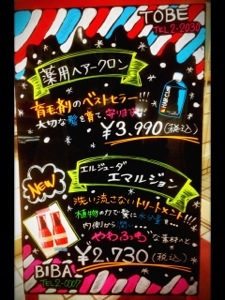 TOBE
TEL2-2030
薬用ヘアークロン
育毛剤のベストセラー!!!
大切な髪を育て、守ります
¥3,990(税込)
NEW
エルジューダ
エマルジョン
洗い流さないトリートメント!!
植物の力で髪に水分を
内側から潤い
やわふわな素材へと
¥2,730(税込)
BIBA
TEL2-0007